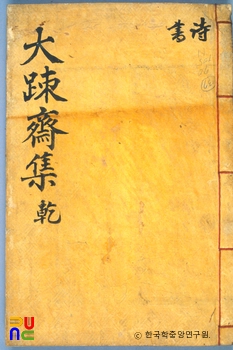 詩
書
大踈齋集 乾
ⓒ 한국학중앙연구원